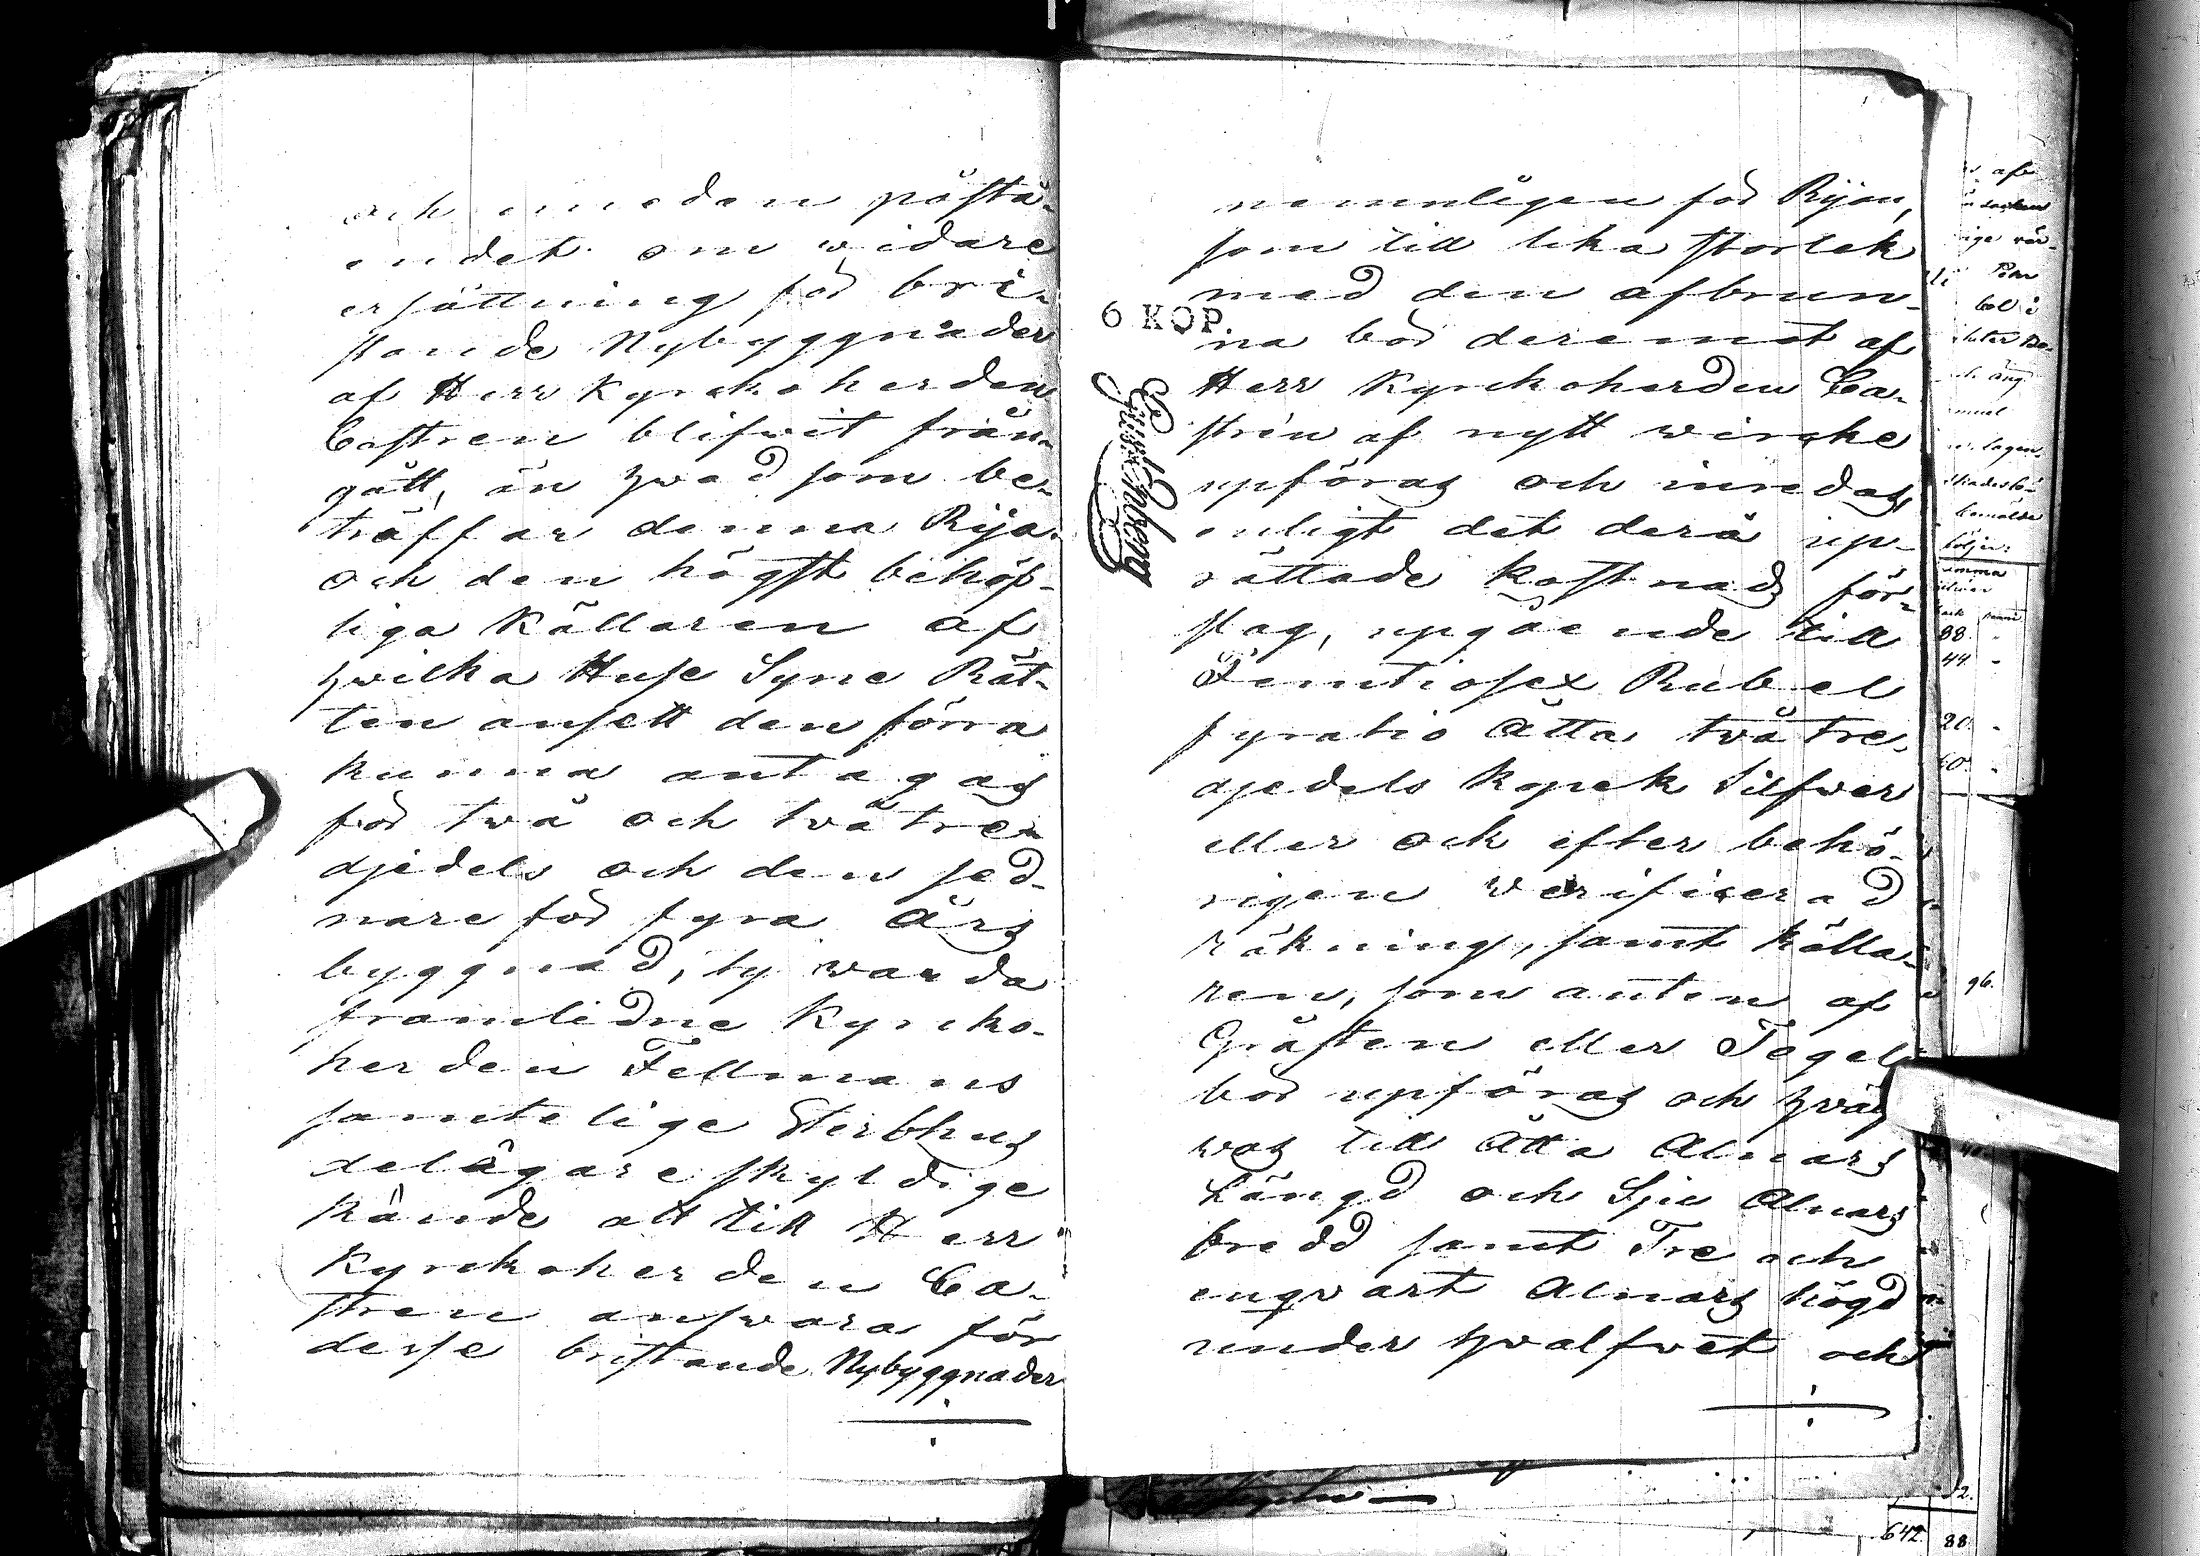 och emedan påstå-
endet om widare
ersättning för bri-
stande Nybyggnader
af Herr Kyrckoherden
Castren blifwit från-
gått, än hwad som be-
träffar denna Rija
och den högst behöf-
liga Källaren af
hwilka Huse Syne Rät-
ten ansett den förra
kunna antagas
för twå och twåtre-
djedels och den sed-
nare för fyra Års
byggnad, ty warda
framlidne Kyrcko-
herden Fellmans
samtelige Sterbhus
delägare skyldige
kände att till Herr
Kyrckoherden Ca-
stren answara för
desse bristande Nybyggnader
nemnligen för Rijan,
som till lika storlek
med den afbrun-
na bör deremot af
Herr Kyrckoherden Ca-
strén af nytt wircke
upföras och inredas,
enligt det derå up-
rättade kostnads för-
slag, upgående till
Femtiosex Rubel
fyratio Åtta twåtre-
djedels Kopek Silfwer
eller och efter behö-
rigen verificerad
räkning, samt källa-
ren, som anten af
Gråsten eller Tegel
bör upföras och hwäl-
was till Åtta Alnars
Längd och Sju Alnars
bredd samt Tre och
engvart Alnars högd
under hwalfwet och
6 KOP.
96.
88
44
20.
642 88